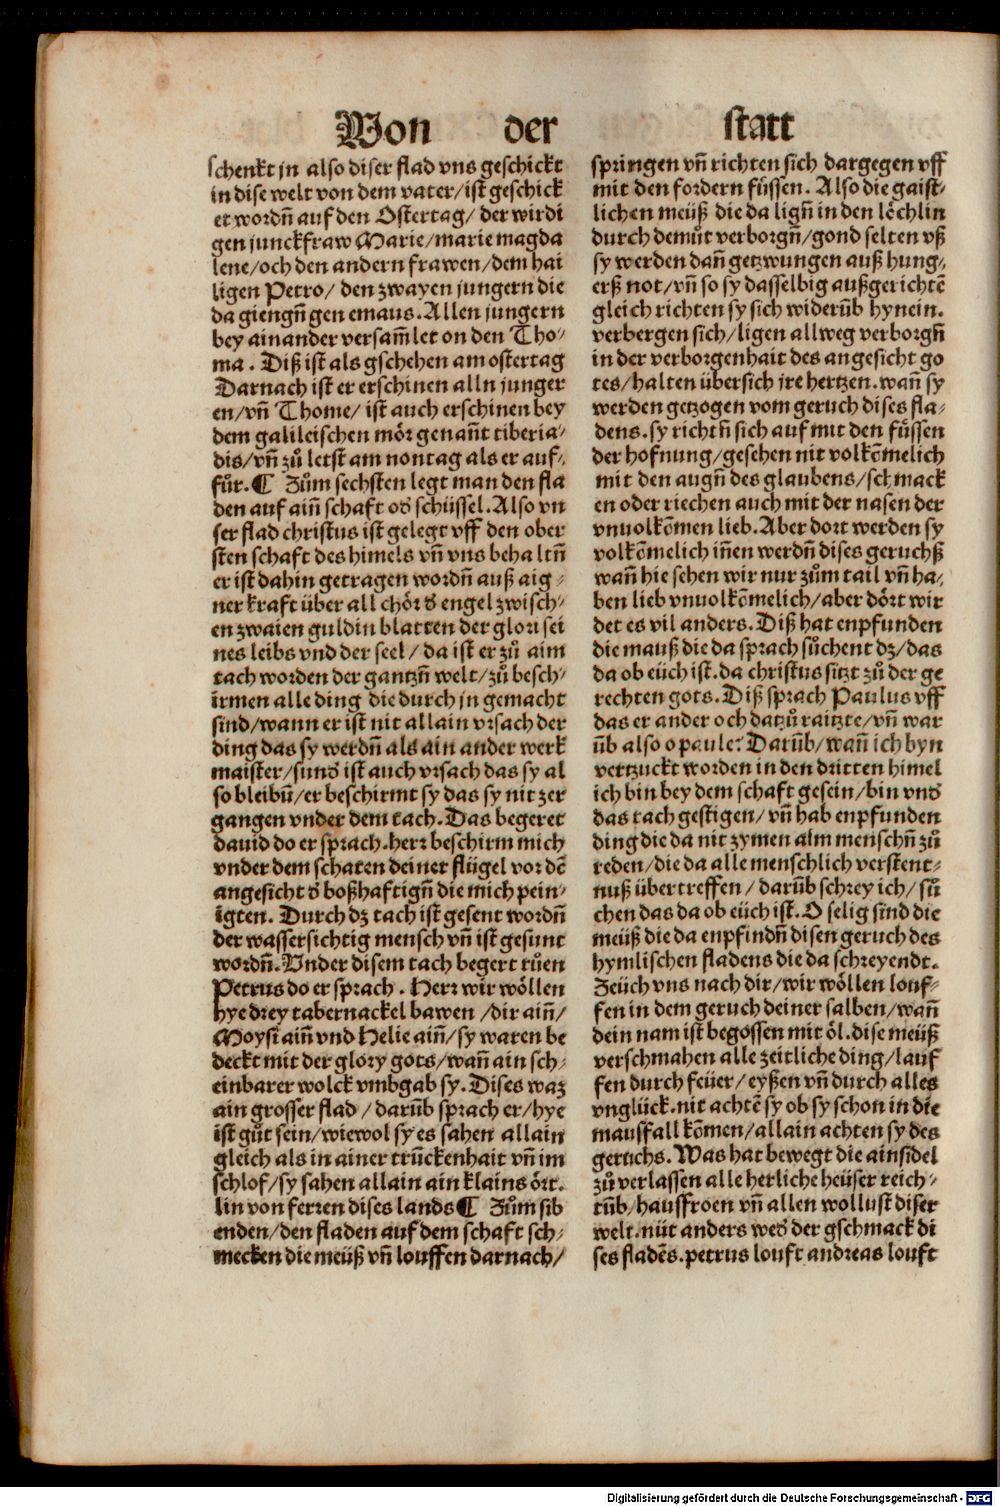 Von der statt
schenkt jn also diser flad vns geschickt
in dise welt von dem vater/ist geschick
et wordñ auf den Ostertag/ der wirdi
gen junckfraw Marie/marie magda
lene/och den andern frawen/dem hai
ligen Petro/ den zwayen jungern die
da giengñ gen emaus. Allen jungern
bey ainander versam̃let on den Tho⸗
ma. Diß ist als gschehen am ostertag
Darnach ist er erschinen alln junger
en/vñ Thome/ ist auch erschinen bey
dem galileischen mör genañt tiberia⸗
dis/vñ zů letst am nontag als er auf⸗
fůr. ¶ Zům sechsten legt man den fla
den auf aiñ schaft od̕ schüssel. Also vn
ser flad christus ist gelegt vff den ober
sten schaft des himels vñ vns behaltñ
er ist dahin getragen wordñ auß aig⸗
ner kraft über all chör d̕ engel zwisch⸗
en zwaien guldin blatten der glori sei
nes leibs vnd der seel/ da ist er zů aim
tach worden der gantzñ welt/zů besch⸗
irmen alle ding die durch jn gemacht
sind/wann er ist nit allain vrsach der
ding das sy werdñ als ain ander werk
maister/sund̕ ist auch vrsach das sy al
so bleibñ/er beschirmt sy das sy nit zer
gangen vnder dem tach. Das begeret
dauid do er sprach. herr beschirm mich
vnder dem schaten deiner flügel vor dẽ
angesicht d̕ boßhaftigñ die mich pein⸗
igten. Durch dz tach ist gesent wordñ
der wassersichtig mensch vñ ist gesunt
wordñ. Vnder disem tach begert růen
Petrus do er sprach. Herr wir wöllen
hye drey tabernackel bawen /dir aiñ/
Moysi aiñ vnd Helie aiñ/sy waren be
deckt mit der glory gots/wañ ain sch⸗
einbarer wolck vmbgab sy. Dises waz
ain grosser flad/ darũb sprach er/hye
ist gůt sein/wiewol sy es sahen allain
gleich als in ainer trückenhait vñ im
schlof/sy sahen allain ain klains ört⸗
lin von ferren dises lands ¶ Zům sib
enden/den fladen auf dem schaft sch⸗
mecken die meüß vñ louffen darnach/
springen vñ richten sich dargegen vff
mit den fordern füssen. Also die gaist⸗
lichen meüß die da ligñ in den löchlin
durch demůt verborgñ/gond selten vß
sy werden dañ getzwungen auß hung⸗
erß not/vñ so sy dasselbig außgerichtẽ
gleich richten sy sich widerũb hynein.
verbergen sich/ligen allweg verborgñ
in der verborgenhait des angesicht go
tes/halten übersich jre hertzen. wañ sy
werden getzogen vom geruch dises fla⸗
dens. sy richtñ sich auf mit den füssen
der hofnung/gesehen nit volkõmelich
mit den augñ des glaubens/schmack
en oder riechen auch mit der nasen der
vnuolkõmen lieb. Aber dort werden sy
volkõmelich iñen werdñ dises geruchß
wañ hie sehen wir nur zům tail vñ ha⸗
ben lieb vnuolkõmelich/aber dört wir
det es vil anders. Diß hat enpfunden
die mauß die da sprach sůchent dz/das
da ob eüch ist. da christus sitzt zů der ge
rechten gots. Diß sprach Paulus vff
das er ander och datzů raitzte/vñ war
ũb also o paule? Darũb/wañ ich byn
vertzuckt worden in den dritten himel
ich bin bey dem schaft gesein/bin vnd̕
das tach gestigen/vñ hab enpfunden
ding die da nit zymen aim menschñ zů
reden/die da alle menschlich verstent⸗
nuß übertreffen/ darũb schrey ich/sů
chen das da ob eüch ist. O selig sind die
meüß die da enpfindñ disen geruch des
hymlischen fladens die da schreyendt.
Zeüch vns nach dir/wir wöllen louf⸗
fen in dem geruch deiner salben/wañ
dein nam ist begossen mit öl. dise meüß
verschmahen alle zeitliche ding/lauf
fen durch feüer/eyßen vñ durch alles
vnglück. nit achtẽ sy ob sy schon in die
mausfall kõmen/allain achten sy des
geruchs. Was hat bewegt die ainsidel
zů verlassen alle herliche heüser reich⸗
tũb/haussfroen vñ allen wollust diser
welt. nüt anders wed̕ der gschmack di
ses fladẽs. petrus louft andreas louft
Digitalisierung gefördert durch die Deutsche Forschungsgemeinschaft - DFG